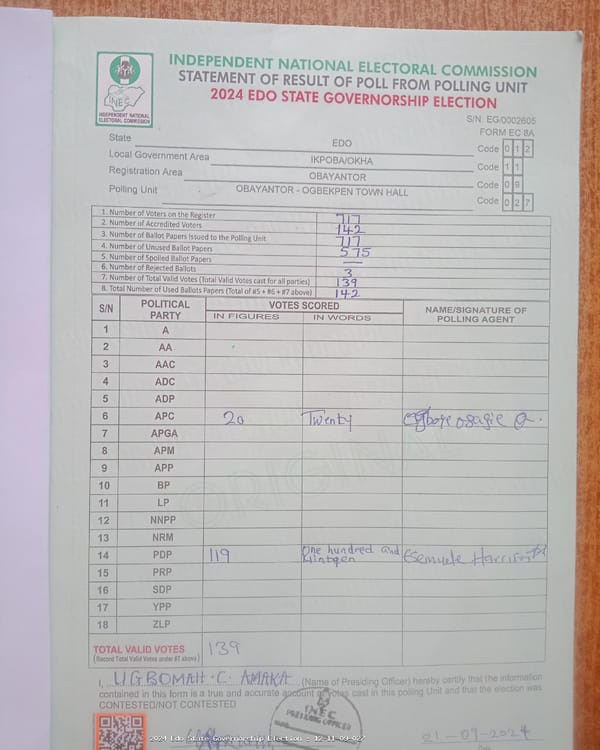 INDEPENDENT NATIONAL ELECTORAL COMMISSION
STATEMENT OF RESULT OF POLL FROM POLLING UNIT
2024 EDO STATE GOVERNORSHIP ELECTION
INEC
INDEPENDENT NATIONAL ELECTORAL COMMISSION
S/N. EG/0002605
FORM EC 8A
State EDO Code 0 1 2
Local Government Area IKPOBA/OKHA Code 1 1
Registration Area OBAYANTOR Code 0 9
Polling Unit OBAYANTOR - OGBEKPEN TOWN HALL Code 0 2 7
1. Number of Voters on the Register 717
2. Number of Accredited Voters 142
3. Number of Ballot Papers Issued to the Polling Unit 717
4. Number of Unused Ballot Papers 575
5. Number of Spoiled Ballot Papers —
6. Number of Rejected Ballots 3
7. Number of Total Valid Votes (Total Valid Votes cast for all parties) 139
8. Total Number of Used Ballots Papers (Total of #5 + #6 + #7 above) 142
S/N POLITICAL PARTY VOTES SCORED NAME/SIGNATURE OF POLLING AGENT
IN FIGURES IN WORDS
1 A
2 AA
3 AAC
4 ADC
5 ADP
6 APC 20 Twenty osagie
7 APGA
8 APM
9 APP
10 BP
11 LP
12 NNPP
13 NRM
14 PDP 119 One hundred and Harrison
15 PRP
16 SDP
17 YPP
18 ZLP
ORIGINAL
TOTAL VALID VOTES 139
(Record Total Valid Votes under #7 above)
I, UGBOMAH . C. AMAKA (Name of Presiding Officer) hereby certify that the information
contained in this form is a true and accurate account of votes cast in this polling Unit and that the election was
CONTESTED/NOT CONTESTED
INEC
PRESIDING OFFICER
21-09-2024
2024 Edo State Governorship Election - 12-11-09-027